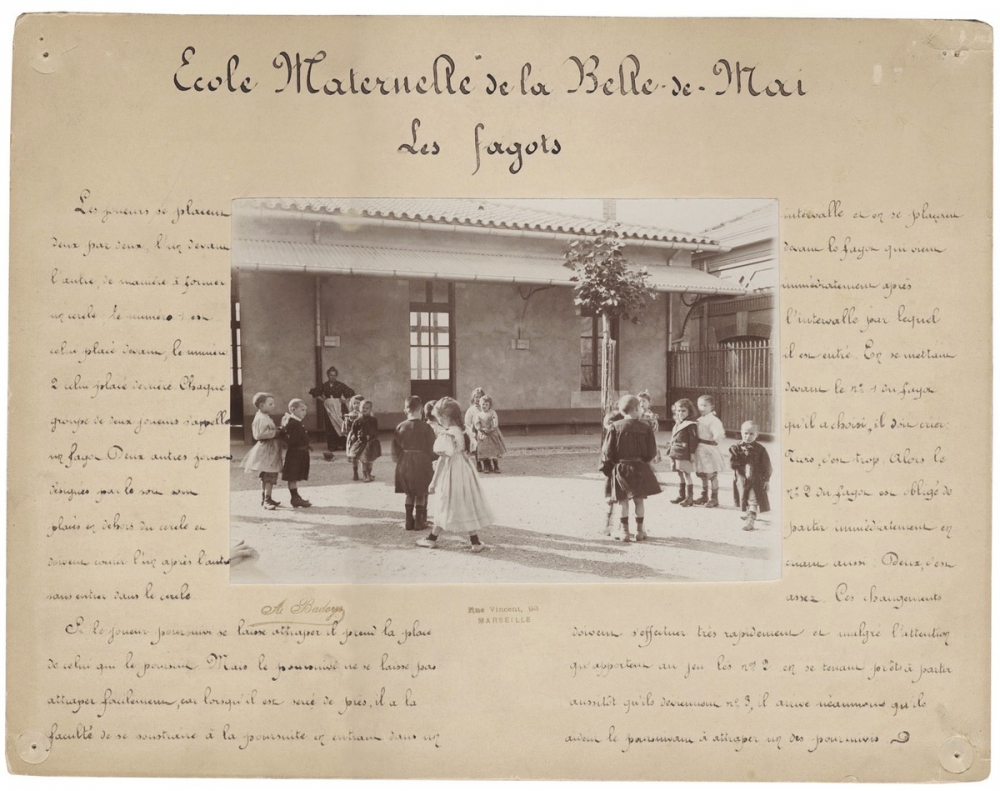 Ecole Maternelle de la Belle-de-Mai
Les fagots
Les joueurs se placent
deux par deux, l'un devant
l'autre, de manière à former
un cercle. Le numéro 1 est
celui placé devant, le numéro
2 celui placé derrière Chaque
groupe de deux joueurs s'appelle
un fagot. Deux autres joueurs
désignés par le sort sont
placés en dehors du cercle et
doivent courir l'un après l'autre
sans entrer dans le cercle.
Si le joueur poursuivi se laisse attraper il prend la place
de celui qui le poursuit. Mais le poursuivi ne se laisse pas
attraper facilement, car lorsqu'il est serré de près, il a la
faculté de se soustraire à la poursuite en entrant dans un
intervalle et en se plaçant
devant le fagot qui vient
immédiatement après
l'intervalle par lequel
il est entré. En se mettant
devant le nº 1 du fagot
qu'il a choisi, il doit crier:
Trois, c'est trop. Alors le
nº 2 du fagot est obligé de
partir immédiatement en
criant aussi: Deux, c'est
assez. Ces changements
doivent s'effectuer très rapidement et malgré l'attention
qu'apportent au jeu les nº 2 en se tenant prêts à partir
aussitôt qu'ils deviennent nº 3, il arrive néanmoins qu'ils
aident le poursuivant à attraper un des poursuivis
Rue Vincent,
MARSEILLE